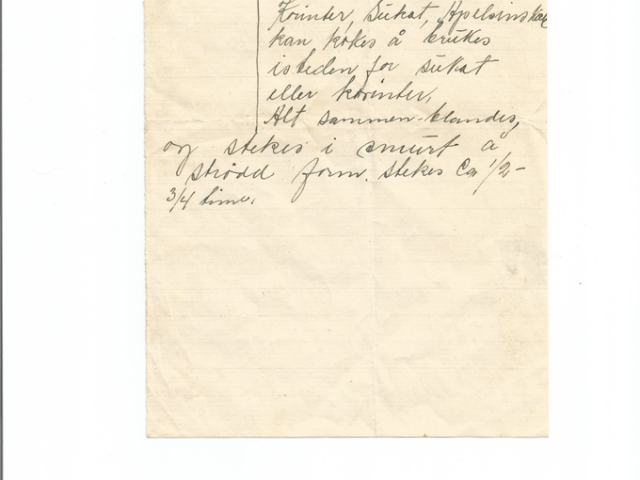 Korinter, Sukat, Apelsinskal
kan kokes å brukes
isteden for sukat
eller korinter.
Alt sammen blandes,
og stekes i smurt å
strödd form. stekes Ca 1/2 -
3/4 time.